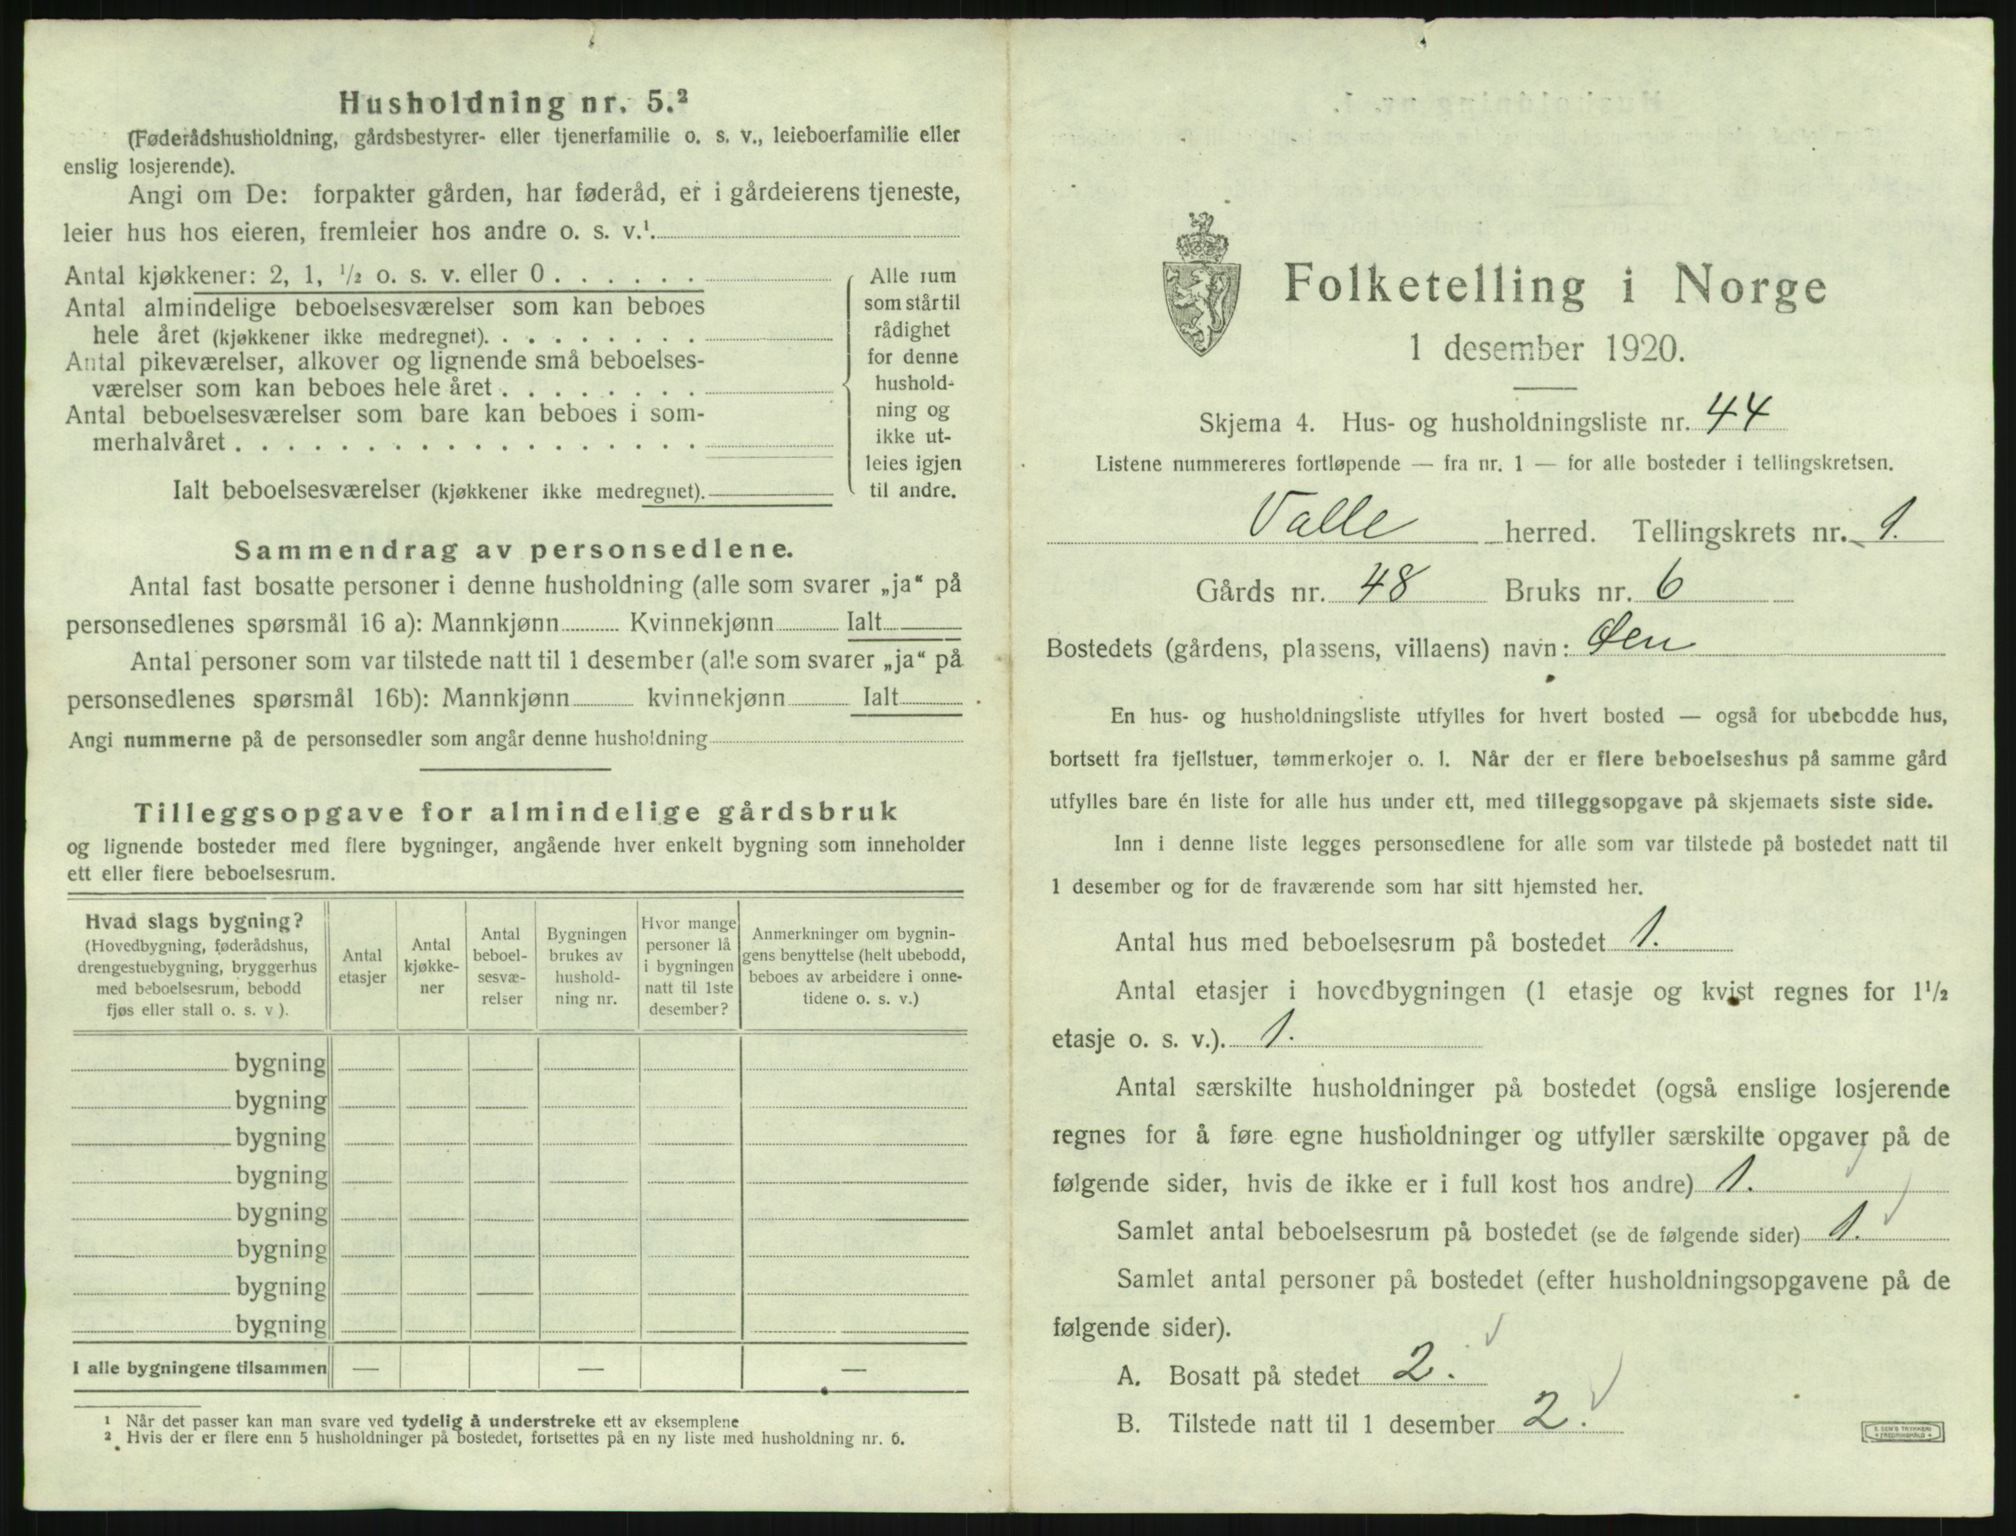 Husholdning nr. 5.²
(Føderådshusholdning, gårdsbestyrer- eller tjenerfamilie o. s. v., leieboerfamilie eller
enslig losjerende).
Angi om De: forpakter gården, har føderåd, er i gårdeierens tjeneste,
leier hus hos eieren, fremleier hos andre o. s. v.¹.
Antal kjøkkener: 2, 1, ½ o. s. v. eller 0 . . . . . .
Antal almindelige beboelsesværelser som kan beboes
hele året (kjøkkener ikke medregnet). . . . . . . . .
Antal pikeværelser, alkover og lignende små beboelses-
værelser som kan beboes hele året . . . . . . . .
Antal beboelsesværelser som bare kan beboes i som-
merhalvåret . . . . . . . . . . . . . . . . . .
Ialt beboelsesværelser (kjøkkener ikke medregnet).
Alle rum
som står til
rådighet
for denne
hushold-
ning og
ikke ut-
leies igjen
til andre.
Sammendrag av personsedlene.
Antal fast bosatte personer i denne husholdning (alle som svarer „ja“ på
personsedlenes spørsmål 16 a): Mannkjønn Kvinnekjønn Ialt
Antal personer som var tilstede natt til 1 desember (alle som svarer „ja“ på
personsedlenes spørsmål 16b): Mannkjønn kvinnekjønn Ialt
Angi nummerne på de personsedler som angår denne husholdning
Tilleggsopgave for almindelige gårdsbruk
og lignende bosteder med flere bygninger, angående hver enkelt bygning som inneholder
ett eller flere beboelsesrum.
Hvad slags bygning?
(Hovedbygning, føderådshus,
drengestuebygning, bryggerhus
med beboelsesrum, bebodd
fjøs eller stall o. s. v ).
Antal
etasjer
Antal
kjøkke-
ner
Antal
beboel-
sesvæ-
relser
Bygningen
brukes av
hushold-
ning nr.
Hvor mange
personer lå
i bygningen
natt til 1ste
desember?
Anmerkninger om bygnin-
gens benyttelse (helt ubebodd,
beboes av arbeidere i onne-
tidene o. s. v.)
bygning
bygning
bygning
bygning
bygning
bygning
bygning
bygning
I alle bygningene tilsammen — — —
¹ Når det passer kan man svare ved tydelig å understreke ett av eksemplene
² Hvis der er flere enn 5 husholdninger på bostedet, fortsettes på en ny liste med husholdning nr. 6.
Folketelling i Norge
1 desember 1920.
Skjema 4. Hus- og husholdningsliste nr. 44
Listene nummereres fortløpende — fra nr. 1 — for alle bosteder i tellingskretsen.
Valle herred. Tellingskrets nr. 1.
Gårds nr. 48 Bruks nr. 6
Bostedets (gårdens, plassens, villaens) navn: Øen
En hus- og husholdningsliste utfylles for hvert bosted — også for ubebodde hus,
bortsett fra fjellstuer, tømmerkojer o. l. Når der er flere beboelseshus på samme gård
utfylles bare én liste for alle hus under ett, med tilleggsopgave på skjemaets siste side.
Inn i denne liste legges personsedlene for alle som var tilstede på bostedet natt til
1 desember og for de fraværende som har sitt hjemsted her.
Antal hus med beboelsesrum på bostedet 1.
Antal etasjer i hovedbygningen (1 etasje og kvist regnes for 1½
etasje o. s. v.). 1.
Antal særskilte husholdninger på bostedet (også enslige losjerende
regnes for å føre egne husholdninger og utfyller særskilte opgaver på de
følgende sider, hvis de ikke er i full kost hos andre) 1.
Samlet antal beboelsesrum på bostedet (se de følgende sider) 1.
Samlet antal personer på bostedet (efter husholdningsopgavene på de
følgende sider).
A. Bosatt på stedet 2.
B. Tilstede natt til 1 desember 2.